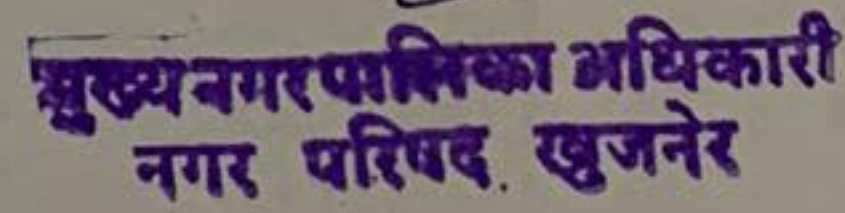 मुख्य नगर पालिका अधिकारी
नगर परिषद. खुजनेर